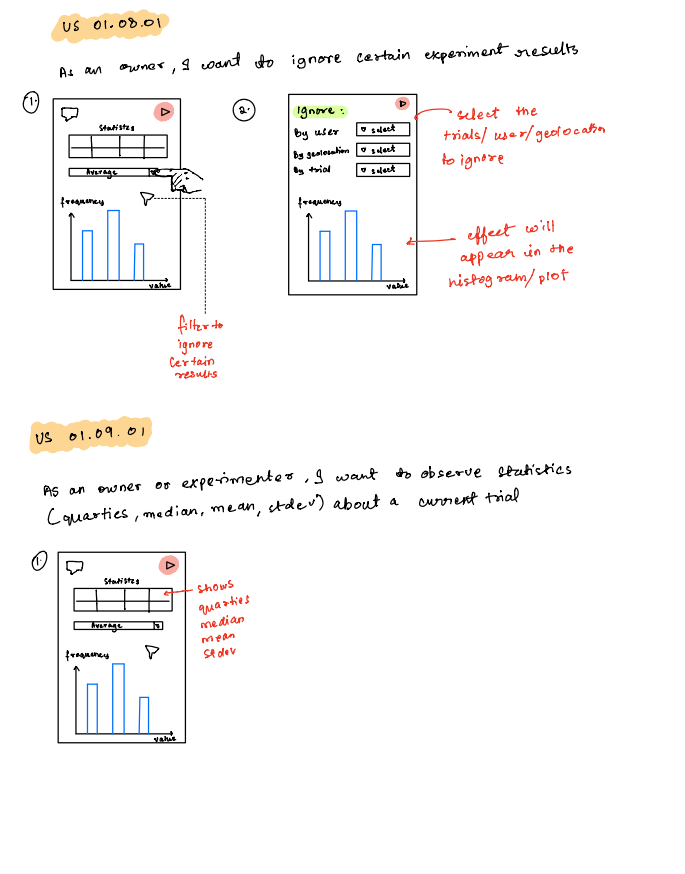 US 01.08.01
As an owner, I want to ignore certain experiment results
1.
Statistcs
Average
frequency
value
filter to
ignore
certain
results
2.
Ignore:
By user
select
By geolocation
select
By trial
select
frequency
value
select the
trials/user/geolocation
to ignore
effect will
appear in the
histogram/plot
US 01.09.01
As an owner or experimenter, I want to observe statistics
(quarties, median, mean, stdev) about a current trial
1.
Statistcs
Average
frequency
value
shows
quarties
median
mean
stdev